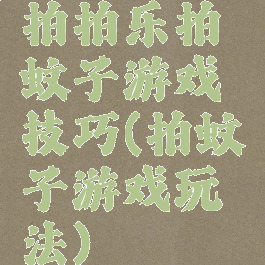 拍拍乐拍
蚊子游戏
技巧(拍蚊
子游戏玩
法)